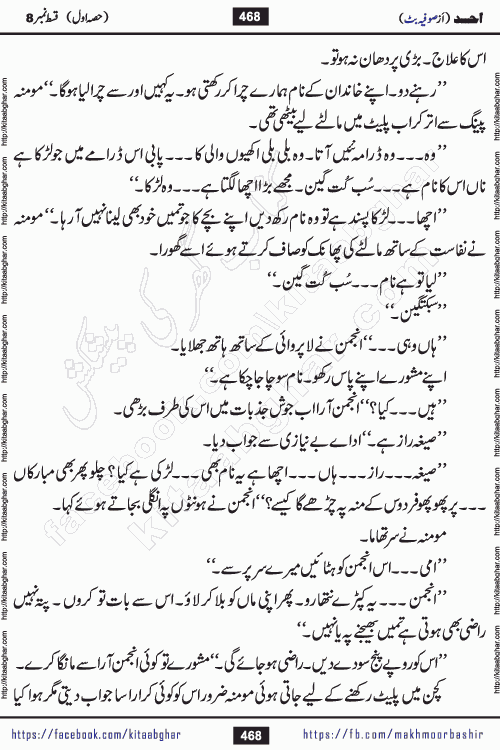 احمد (از صوفیہ بٹ) 468 (حصہ اول) قسط نمبر 8
اس کا علاج۔ بڑی پردھان نہ ہو تو۔
’’رہنے دو۔ اپنے خاندان کے نام ہمارے چرا کر رکھتی ہو۔ یہ کہیں اور سے چرا لیا ہوگا۔‘‘ مومنہ
پینگ سے اتر کر اب پلیٹ میں مالٹے لیے بیٹھی تھی۔
’’وہ۔۔۔ وہ ڈرامہ نئیں آتا۔ وہ بلی بلی اکھیوں والی کا ۔۔۔ پابی اس ڈرامے میں جو لڑکا ہے
ناں اس کا نام ہے۔۔۔ سُب کُت گین۔ مجھے بڑا اچھا لگتا ہے۔۔۔ وہ لڑکا۔‘‘
’’اچھا۔۔۔ لڑکا پسند ہے تو وہ نام رکھ دیں اپنے بچے کا جو تمیں خود بھی لینا نہیں آ رہا۔‘‘ مومنہ
نے نفاست کے ساتھ مالٹے کی پھانک کو صاف کرتے ہوئے اسے گھورا۔
’’لیا تو ہے نام ۔۔۔ سُب کُت گین۔‘‘
’’سبکتگین۔‘‘
’’ہاں وہی۔۔۔‘‘ انجمن نے لاپروائی کے ساتھ ہاتھ جھلایا۔
اپنے مشورے اپنے پاس رکھو۔ نام سوچا جا چکا ہے۔‘‘
’’ہیں۔۔۔ کیا؟‘‘ انجمن آرا اب جوش جذبات میں اس کی طرف بڑھی۔
’’صیغہ راز ہے۔‘‘ ادائے بے نیازی سے جواب دیا۔
’’صیغہ۔۔۔ راز۔۔۔ ہاں ۔۔۔ اچھا ہے یہ نام بھی۔۔۔ لڑکی ہے کیا؟ چلو پھر بھی مبارکاں
۔۔۔ پر پھوپھو فردوس کے منہ پہ چڑھے گا کیسے؟‘‘ انجمن نے ہونٹوں پہ انگلی بجاتے ہوئے کہا۔
مومنہ نے سر تھاما۔
’’امی۔۔۔ اس انجمن کو ہٹائیں میرے سر پر سے۔‘‘
’’انجمن ۔۔۔ یہ کپڑے نتھارو۔ پھر اپنی ماں کو بلا کر لاؤ۔ اس سے بات تو کروں ۔ پتہ نہیں
راضی بھی ہوتی ہے تمیں بھیجنے پہ یا نہیں۔‘‘
’’اس کو روپے پنج سو دے دیں۔ راضی ہو جائے گی۔‘‘ مشورے تو کوئی انجمن آرا سے مانگا کرے۔
کچن میں پلیٹ رکھنے کے لیے جاتی ہوئی مومنہ ضرور اس کو کوئی کرارا سا جواب دیتی مگر ہوا کیا
https://facebook.com/kitaabghar 468 https://fb.com/makhmoorbashir
http://kitaabghar.com http://kitaabghar.com http://kitaabghar.com http://kitaabghar.com http://kitaabghar.com http://kitaabghar.com http://kitaabghar.com http://kitaabghar.com
کتاب گھر کی پیشکش
facebook.com/kitaabghar
kitaabghar.com